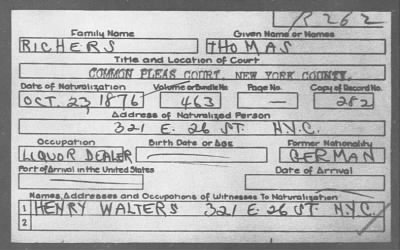 R262
Family Name Given Name or Names
RICHERS THOMAS
Title and Location of Court
COMMON PLEAS COURT, NEW YORK COUNTY.
Date of Naturalization Volume or Bundle No Page No. Copy of Record No.
OCT. 23, 1876 463 — 282
Address of Naturalized Person
321 E. 26 ST. N.Y.C.
Occupation Birth Date or Age Former Nationality
LIQUOR DEALER GERMAN
Port of Arrival in the United States Date of Arrival
Names, Addresses and Occupations of Witnesses To Naturalization
1 HENRY WALTERS 321 E. 26 ST. N.Y.C.
2